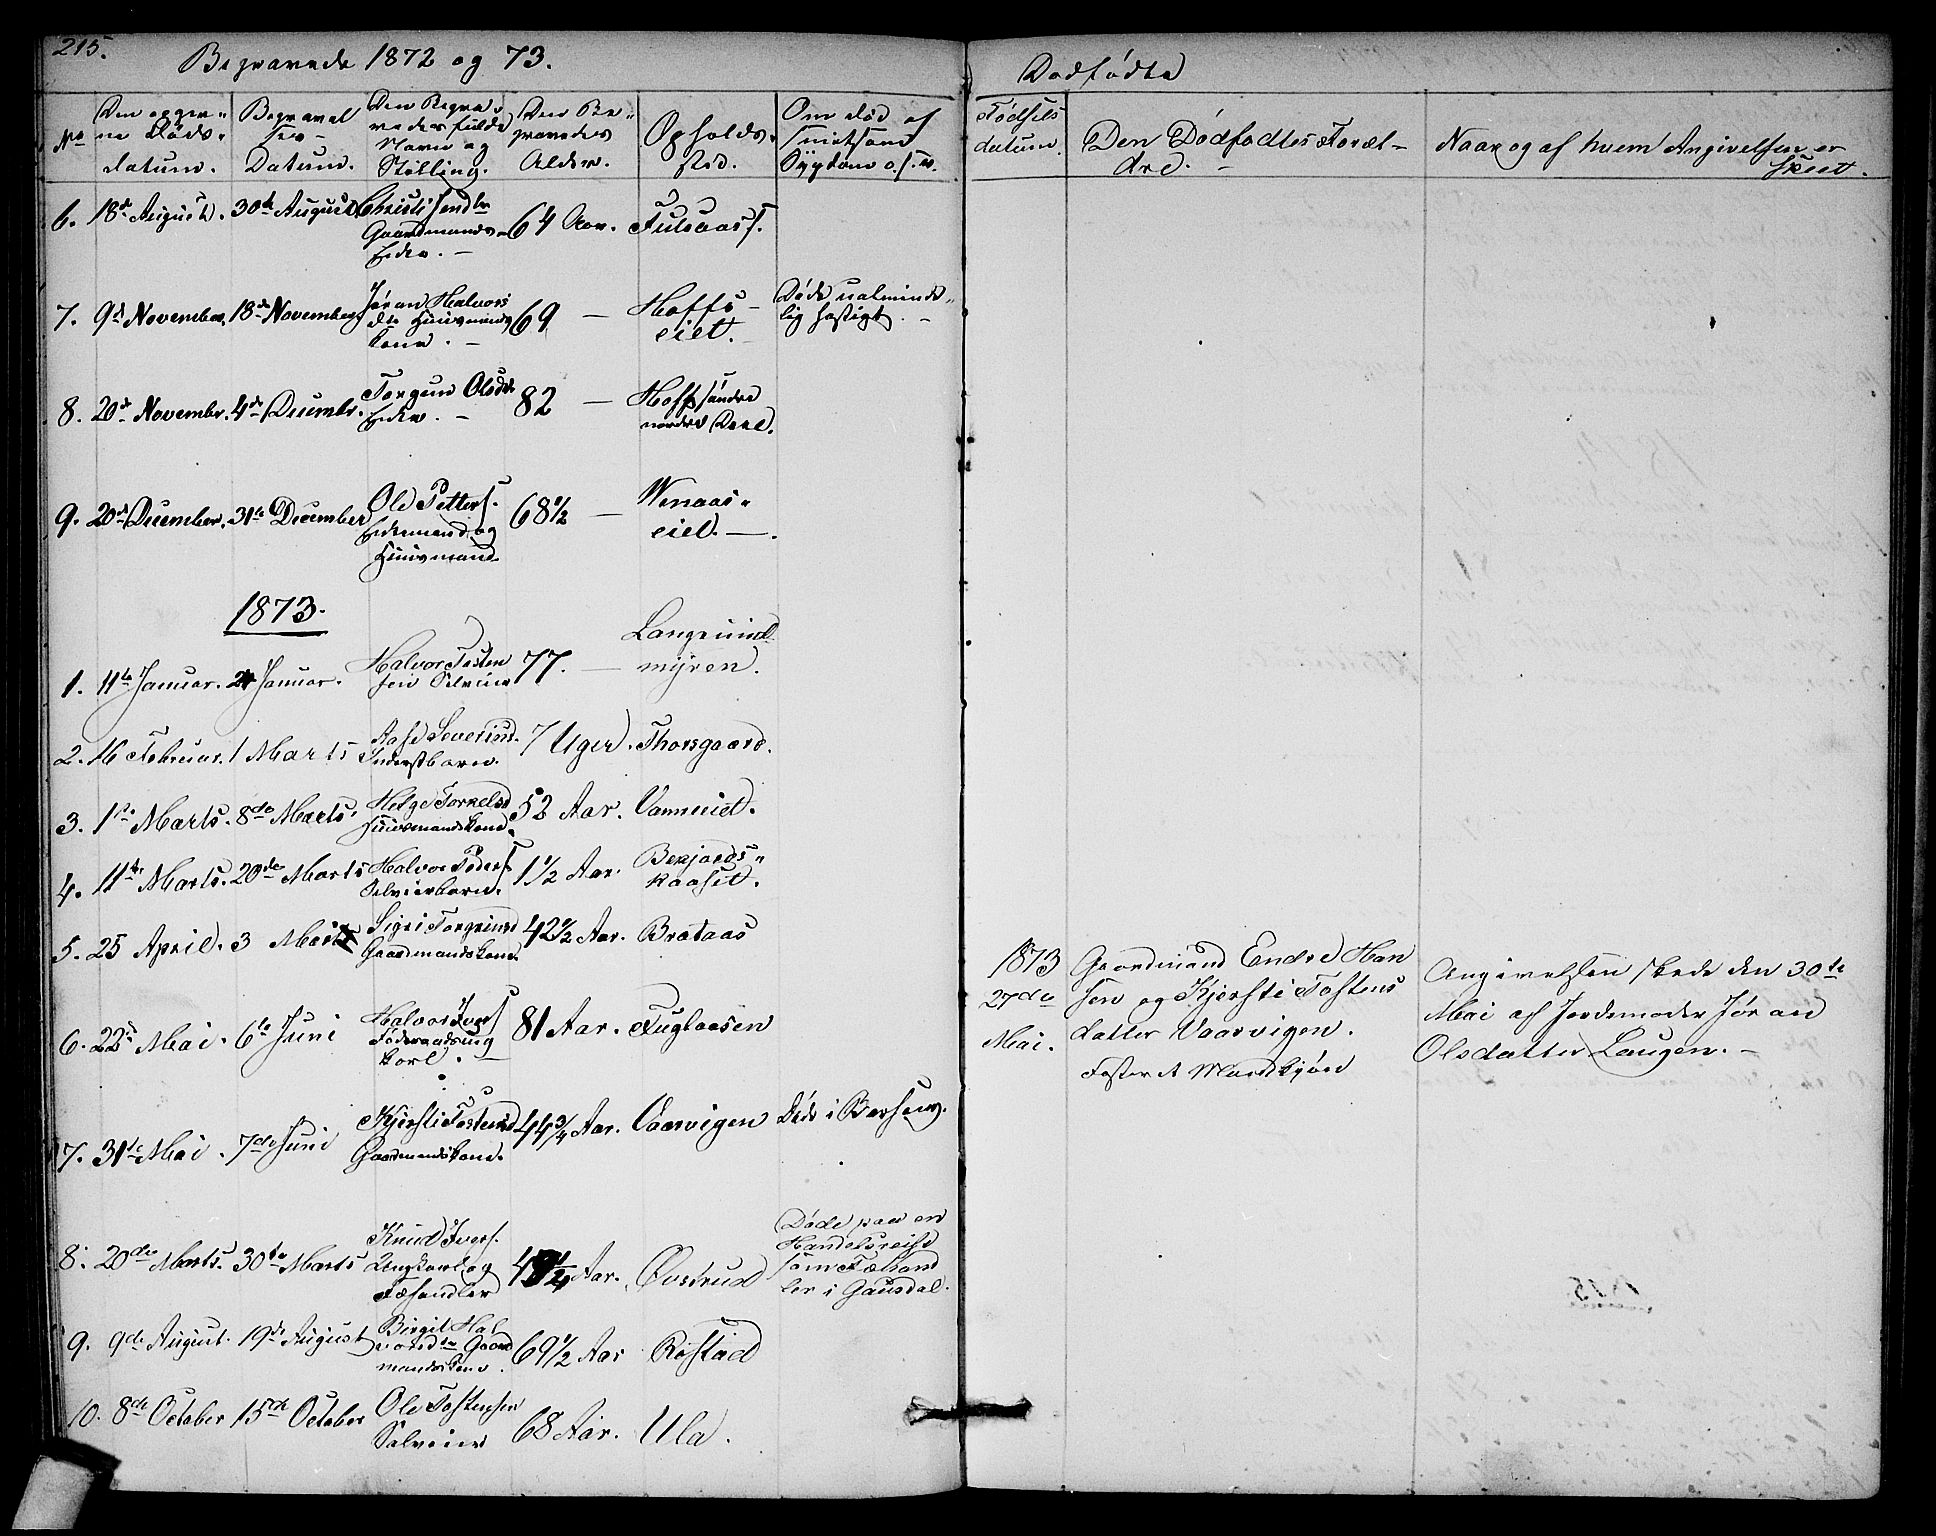 215.
Begravede 1872 og 73.
No
Den opgiv-
ne Døds-
datum.
Begravel
ses-
Datum.
Den Begra-
vedes fulde
Navn og
Stilling.
Den Be-
gravedes
Alder.
Opholds-
sted.
Om død af
smitsom
Sygdom o.s.v.
6. 18de August. 30te August Christi
Gaardmands-
Enke. -
64 Aar.
7. 9de November. 18de November Jøran Halvors
dtr Huusmands
kone. -
69 -
Hoffs-
eiet.
Døde ualminde-
lig hastigt. -
8. 20de Novembr. 4de Decembr. Torgun Olsdtr
Enke. -
82 -
Hoff søndre
nordre Deel.
9. 20de December. 31te December Ole Petters.
Enkemand og
Huusmand.
68 1/2 -
Wenaas-
eiet. -
1873.
1. 11te Januar. 24 Januar. Halvor Tosten
sen Selveier
77. -
myren.
2. 16 Februar. 1 Marts Aase Severind.
Inderstbarn.
7 Uger. Thorsgaard.
3. 1ste Marts. 8de Marts. Helge Torkelsd
Huusmandskone.
52 Aar.
4. 11te Marts. 20de Marts Halvor Peders.
Selveierbarn.
1 1/2 Aar.
kaaset.
5. 25 April. 3 Mai Sigri Torgrimsd
Gaardmandskone.
42 1/2 Aar. Brataas
6. 22de Mai. 6te Juni Halvor Ivers.
Føderaadsung
karl. -
81 Aar. Fuglaasen
7. 31te Mai. 7de Juni Kjersti Tostensd
Gaardmandskone.
44 3/4 Aar. Vaarvigen Døde i Barselseng.
8. 20de Marts. 30te Marts Knud Ivers.
Ungkarl og
Fæhandler
Aar. Øvstrud
Døde paa en
Handelsreise
som Fæhand
ler i Gausdal.
9. 9de August. 19de August Birgit Hal
vorsdtr Gaard
mandskone.
69 1/2 Aar Røstad
10. 8de October 15de October Ole Tostensen
Selveier
68 Aar. Ula.
Dødfødte
Fødsels
datum.
Den Dødfødtes Foræl-
dre. -
Naar og af hvem Angivelsen er
skeet.
1873
27de
Mai.
Gaardmand Endre Han
sen og Kjersti Tostens
datter Vaarvigen.
Fosteret Mandkjøn
Angivelsen skede den 30te
Mai af Jordemoder Jøran
Olsdatter Laugen. -